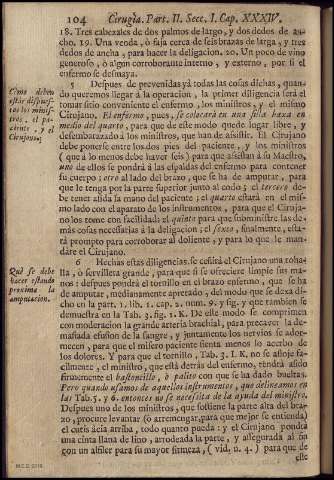 104 Cirugia. Part. II. Secc. I. Cap. XXXIV.
18. Tres cabezales de dos palmos de largo, y dos dedos de an-
cho. 19. Una venda, ò faja cerca de seis brazas de larga, y tres
dedos de ancha, para hacer la deligacion. 20. Un poco de vino
generoso, ò algun corroborante interno, y externo, por si el
enfermo se desmaya.
5 Despues de prevenidas yà todas las cosas dichas, quan-
do queremos llegar à la operacion, la primer diligencia serà el
tomar sitio conveniente el enfermo, los ministros, y el mismo
Cirujano. El enfermo, pues, se colocarà en una silla baxa en
medio del quarto, para que de este modo quede lugar libre, y
desembarazado à los ministros, que han de assistir. El Cirujano
debe ponerse entre los dos pies del paciente, y los ministros
(que à lo menos debe haver seis) para que assistan à su Maestro,
uno de ellos se pondrà à las espaldas del enfermo para contener
su cuerpo: otro al lado del brazo, que se ha de amputar, para
que le tenga por la parte superior junto al codo; el tercero de-
be tener asida la mano del paciente: el quarto estarà en el mis-
mo lado con el aparato de los instrumentos, para que el Ciruja-
no los tome con facilidad: el quinto para que subministre las de-
màs cosas necessarias à la deligacion; el sexto, finalmente, esta-
rà prompto para corroborar al doliente, y para lo que le man-
dàre el Cirujano.
6 Hechas estas diligencias, se ceñirà el Cirujano una toha-
lla, ò servilleta grande, para que si se ofreciere limpie sus ma-
nos: despues pondrà el tornillo en el brazo enfermo, que se ha
de amputar, medianamente apretado, del modo que se dexa di-
cho en la part. 1. lib. 1. cap. 2. num. 9. y sig. y que tambien se
demuestra en la Tab. 3. fig. 1. K. De este modo se comprimen
con moderacion la grande arteria brachial, para precaver la de-
masiada efusion de la sangre, y juntamente los nervios se ador-
mecen, para que el misero paciente sienta menos lo acerbo de
los dolores. Y para que el tornillo, Tab. 3. I. K, no se afloje fa-
cilmente, el ministro, que està detràs del enfermo, tendrà asido
firmemente el bastoncillo, ò palito con que se la dado bueltas.
Pero quando usamos de aquellos instrumentos, que delineamos en
las Tab. 5. y 6. entonces no se necessita de la ayuda del ministro.
Despues uno de los ministros, que sostiene la parte alta del bra-
zo, procure levantar (ò arremangar, para que mejor se entienda)
el cutis àcia arriba, todo quanto pueda: y el Cirujano pondrà
una cinta llana de lino, arrodeada la parte, y assegurada al fin
con un alfiler para su mayor firmeza, (vid. n. 4.) para que de
este
Como deben
estar dispues-
tos los minis-
tros, el pa-
ciente, y el
Cirujano.
Què se debe
hacer estando
proxima la
amputacion.